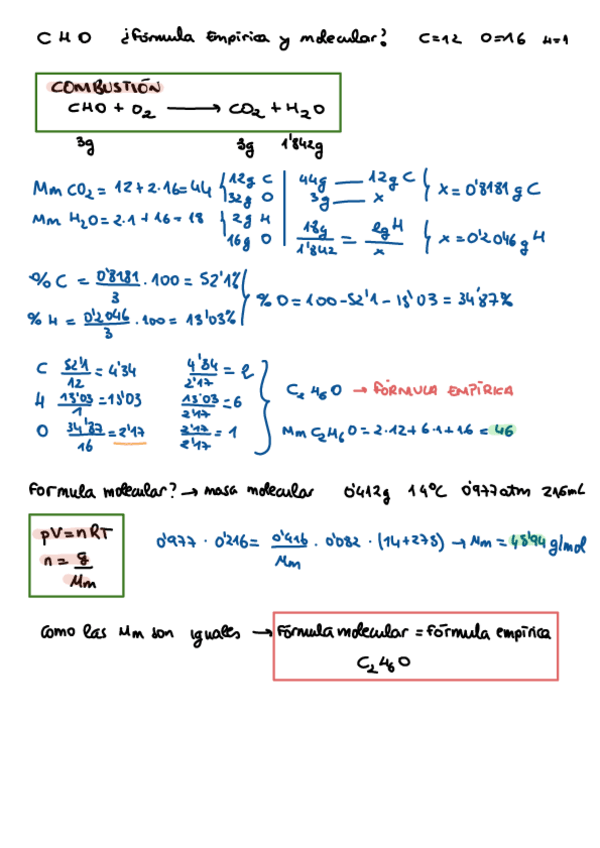 C H O ¿Fórmula Empírica y molecular? C=12 O=16 H=1
COMBUSTIÓN
CHO + O₂ ⟶ CO₂ + H₂O
3g 3g 1'842g
Mm CO₂ = 12+2·16=44 { 12g C 32g O
44g — 12g C 3g — x } x=0'8181 g C
Mm H₂O = 2·1+16=18 { 2g H 16g O
18g/1'842 = 2g H/x } x=0'2046 g H
% C = 0'8181/3 · 100 = 52'1%
% H = 0'2046/3 · 100 = 13'03%
% O = 100-52'1-13'03 = 34'87%
C 52'1/12 = 4'34 4'34/2'17 = 2
H 13'03/1 = 13'03 13'03/2'17 = 6
O 34'87/16 = 2'17 2'17/2'17 = 1
C₂H₆O → FÓRMULA EMPÍRICA
Mm C₂H₆O = 2·12+6·1+16 = 46
Formula molecular? → masa molecular 0'412g 14ºC 0'977atm 216mL
pV=nRT
n = g/Mm
0'977 · 0'216 = 0'416/Mm · 0'082 · (14+273) → Mm = 45'94 g/mol
Como las Mm son iguales → Fórmula molecular = fórmula empírica
C₂H₆O